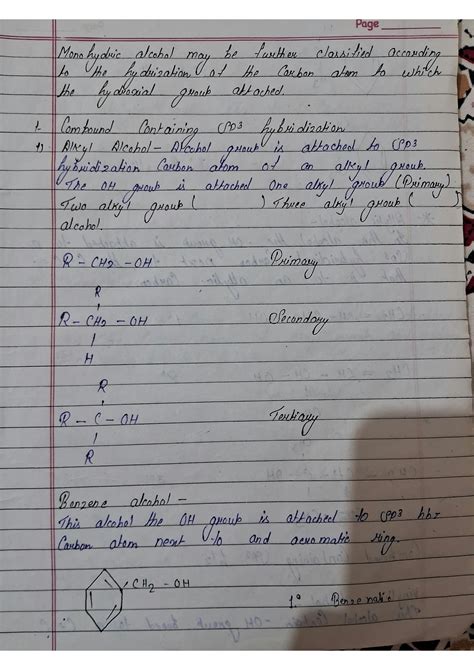 Page
Monohydric alcohol may be further classified according
to the hydrization of the Carbon atom to which
the hydroxial group attached.
1- Compound Containing SP3 hybridization
1) Alkyl Alcohol - Alcohol group is attached to SP3
hybridization Carbon atom of an alkyl group.
The OH group is attached One alkyl group (Primary)
Two alkyl group ( ) Three alkyl group ( )
alcohol.
R - CH2 - OH Primary
R
R - CH2 - OH Secondary
H
R
R - C - OH Tertiary
R
Benzene alcohol -
This alcohol the OH group is attached to SP3
Carbon atom next to and aeromatic ring.
CH2 - OH
1.°